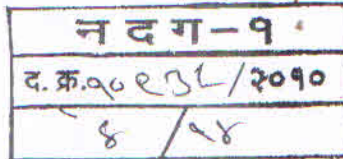 न द ग - १
द. क्र. १०९३८/२०१०
४/१४